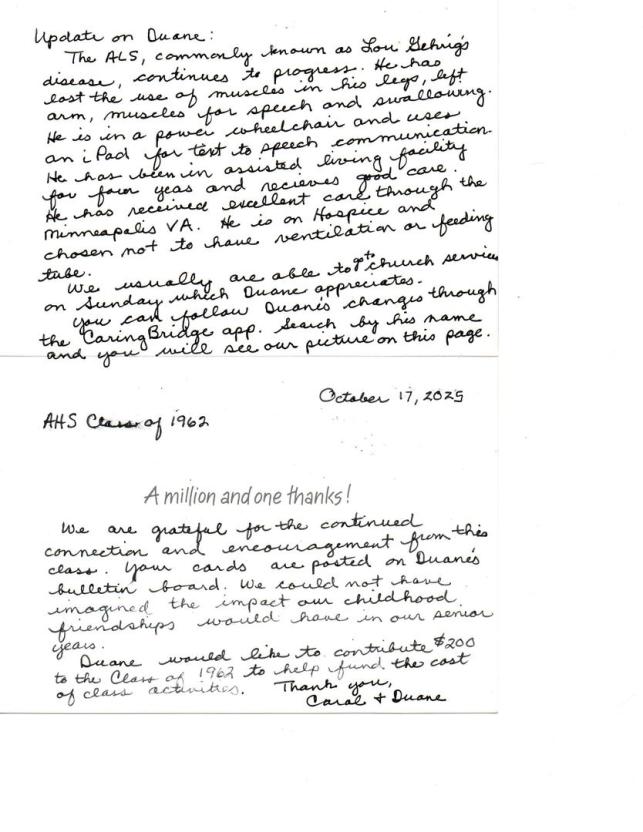 Update on Duane:
The ALS, commonly known as Lou Gehrig's
disease, continues to progress. He has
lost the use of muscles in his legs, left
arm, muscles for speech and swallowing.
He is in a power wheelchair and uses
an iPad for text to speech communication.
He has been in assisted living facility
for four yeas and recieves good care.
He has received excellent care through the
Minneapolis VA. He is on Hospice and
chosen not to have ventilation or feeding
tube.
We usually are able to go to church services
on Sunday which Duane appreciates.
You can follow Duane's changes through
the CaringBridge app. Search by his name
and you will see our picture on this page.
October 17, 2025
AHS Class of 1962
A million and one thanks!
We are grateful for the continued
connection and encouragement from this
class. Your cards are posted on Duane's
bulletin board. We could not have
imagined the impact our childhood
friendships would have in our senior
years.
Duane would like to contribute $200
to the Class of 1962 to help fund the cost
of class activities. Thank you,
Carol + Duane